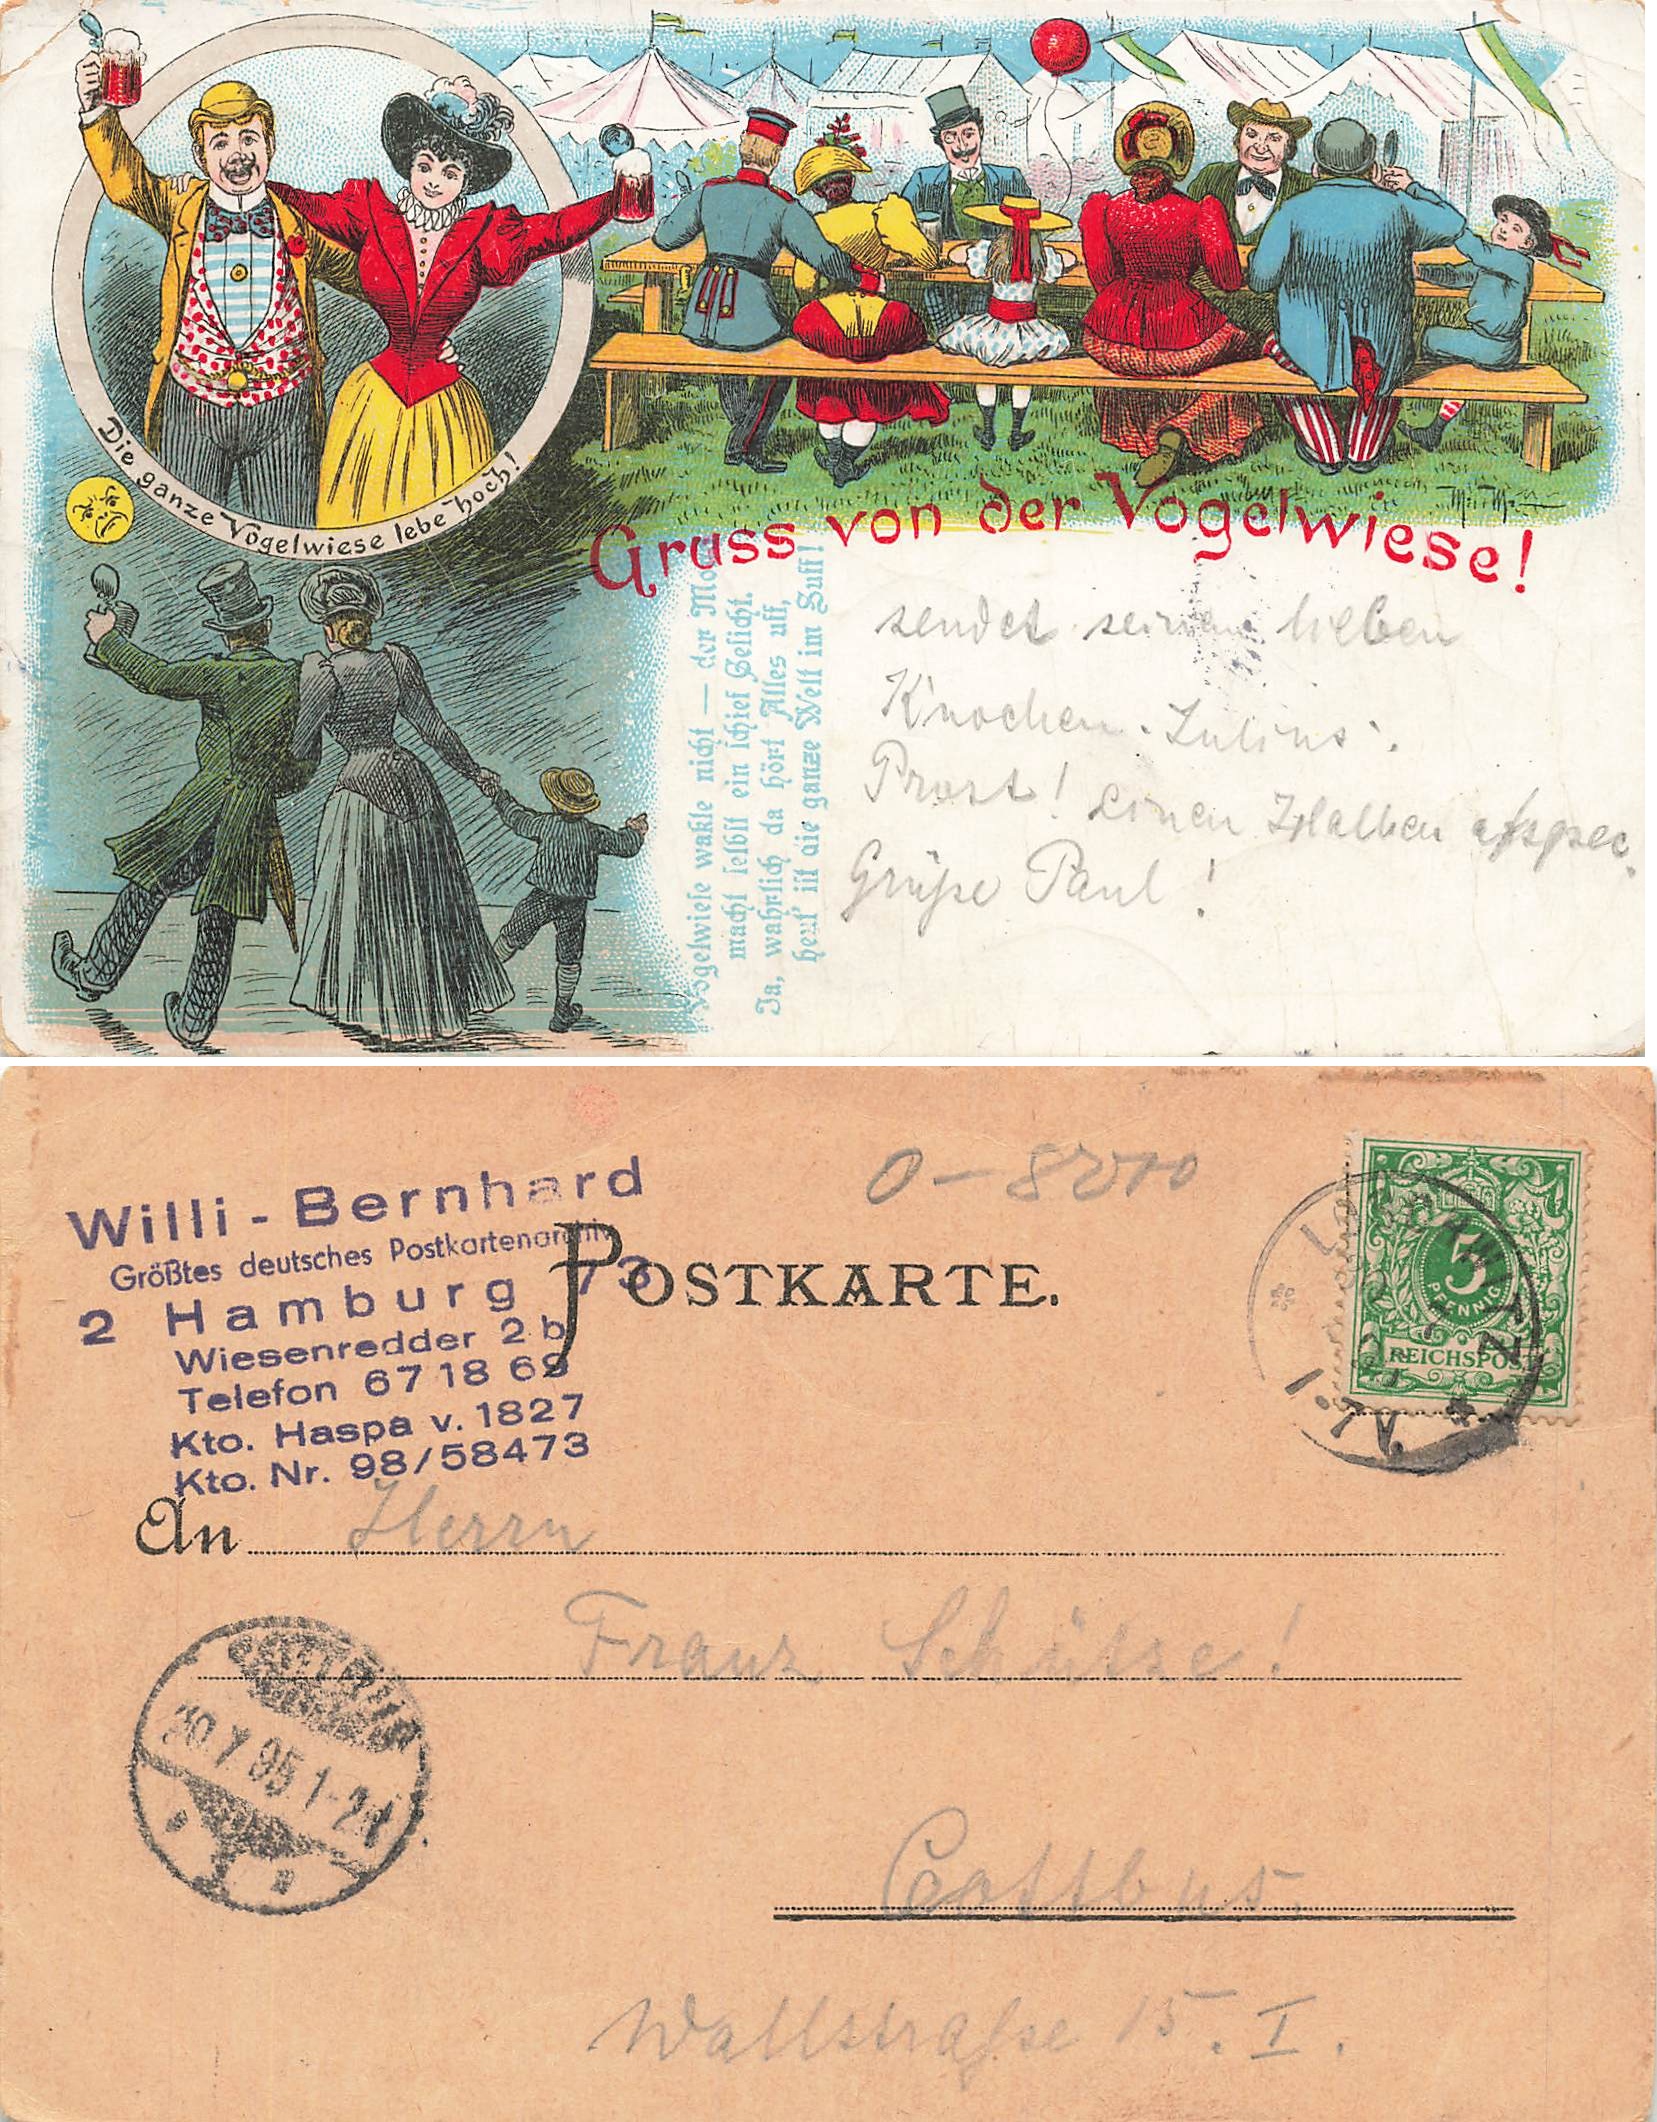 Die ganze Vogelwiese lebe hoch!
Gruss von der Vogelwiese!
Vogelwiese wakle nicht — der Mo
macht selbst ein schief Gesicht.
Ja, wahrlich da hört Alles uff,
heut' ist die ganze Welt im Suff!
sendet seinen lieben
Knochen Julius.
Prost! einen Halben
Grüße Paul!
Willi-Bernhard
Größtes deutsches Postkartenarchiv
2 Hamburg 73
Wiesenredder 2 b
Telefon 67 18 69
Kto. Haspa v. 1827
Kto. Nr. 98/58473
POSTKARTE.
5
PFENNIG
REICHSPOST
An Herrn
Franz Schütze!
Cottbus.
Wallstraße 15. I.
20 7 95 1-2N